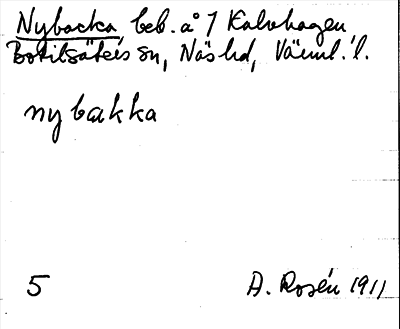 Nybacka, beb. å 1 Kalvhagen
Botilsäters sn, Näs hd, Värml. l.
nybakka
5 A. Rosén 1911